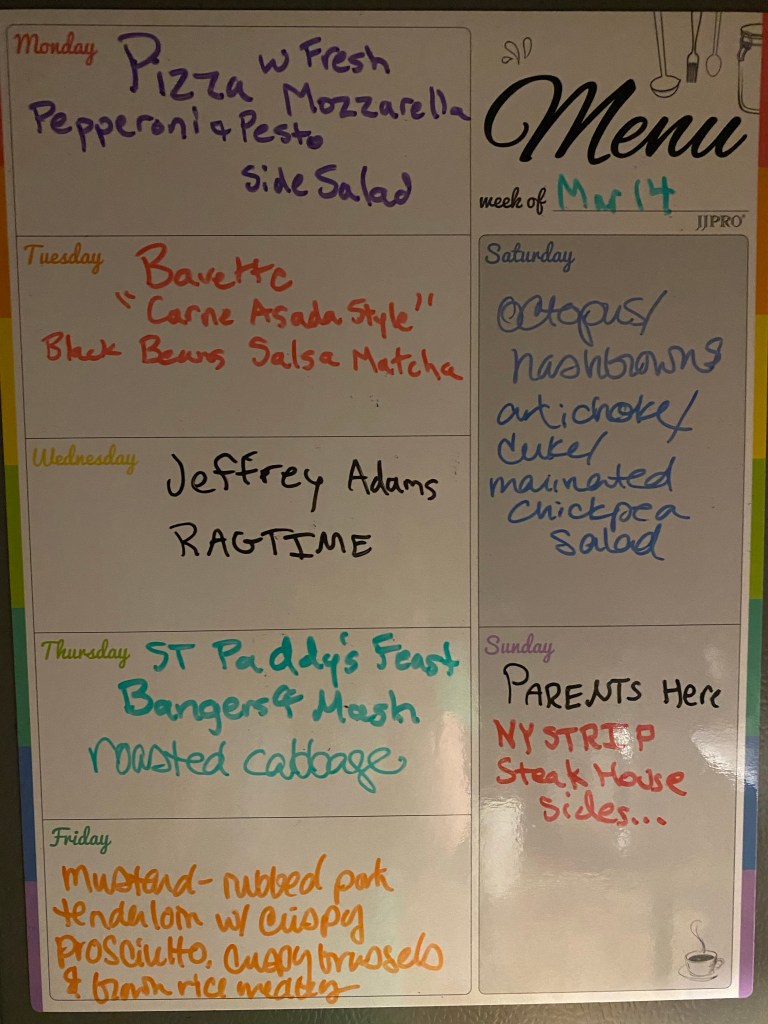 Monday
Pizza w Fresh
Mozzarella
Pepperoni & Pesto
Side Salad
Menu
week of Mar 14
JJPRO
Tuesday
Bavette
"Carne Asada Style"
Black Beans Salsa Matcha
Wednesday
Jeffrey Adams
RAGTIME
Thursday
ST Paddy's Feast
Bangers & Mash
roasted cabbage
Friday
mustard-rubbed pork
tenderloin w/ crispy
prosciutto, crispy brussels
& brown rice medley
Saturday
octopus/
hashbrowns
artichoke/
cuke/
marinated
chickpea
salad
Sunday
PARENTS Here
NY STRIP
Steak House
Sides...